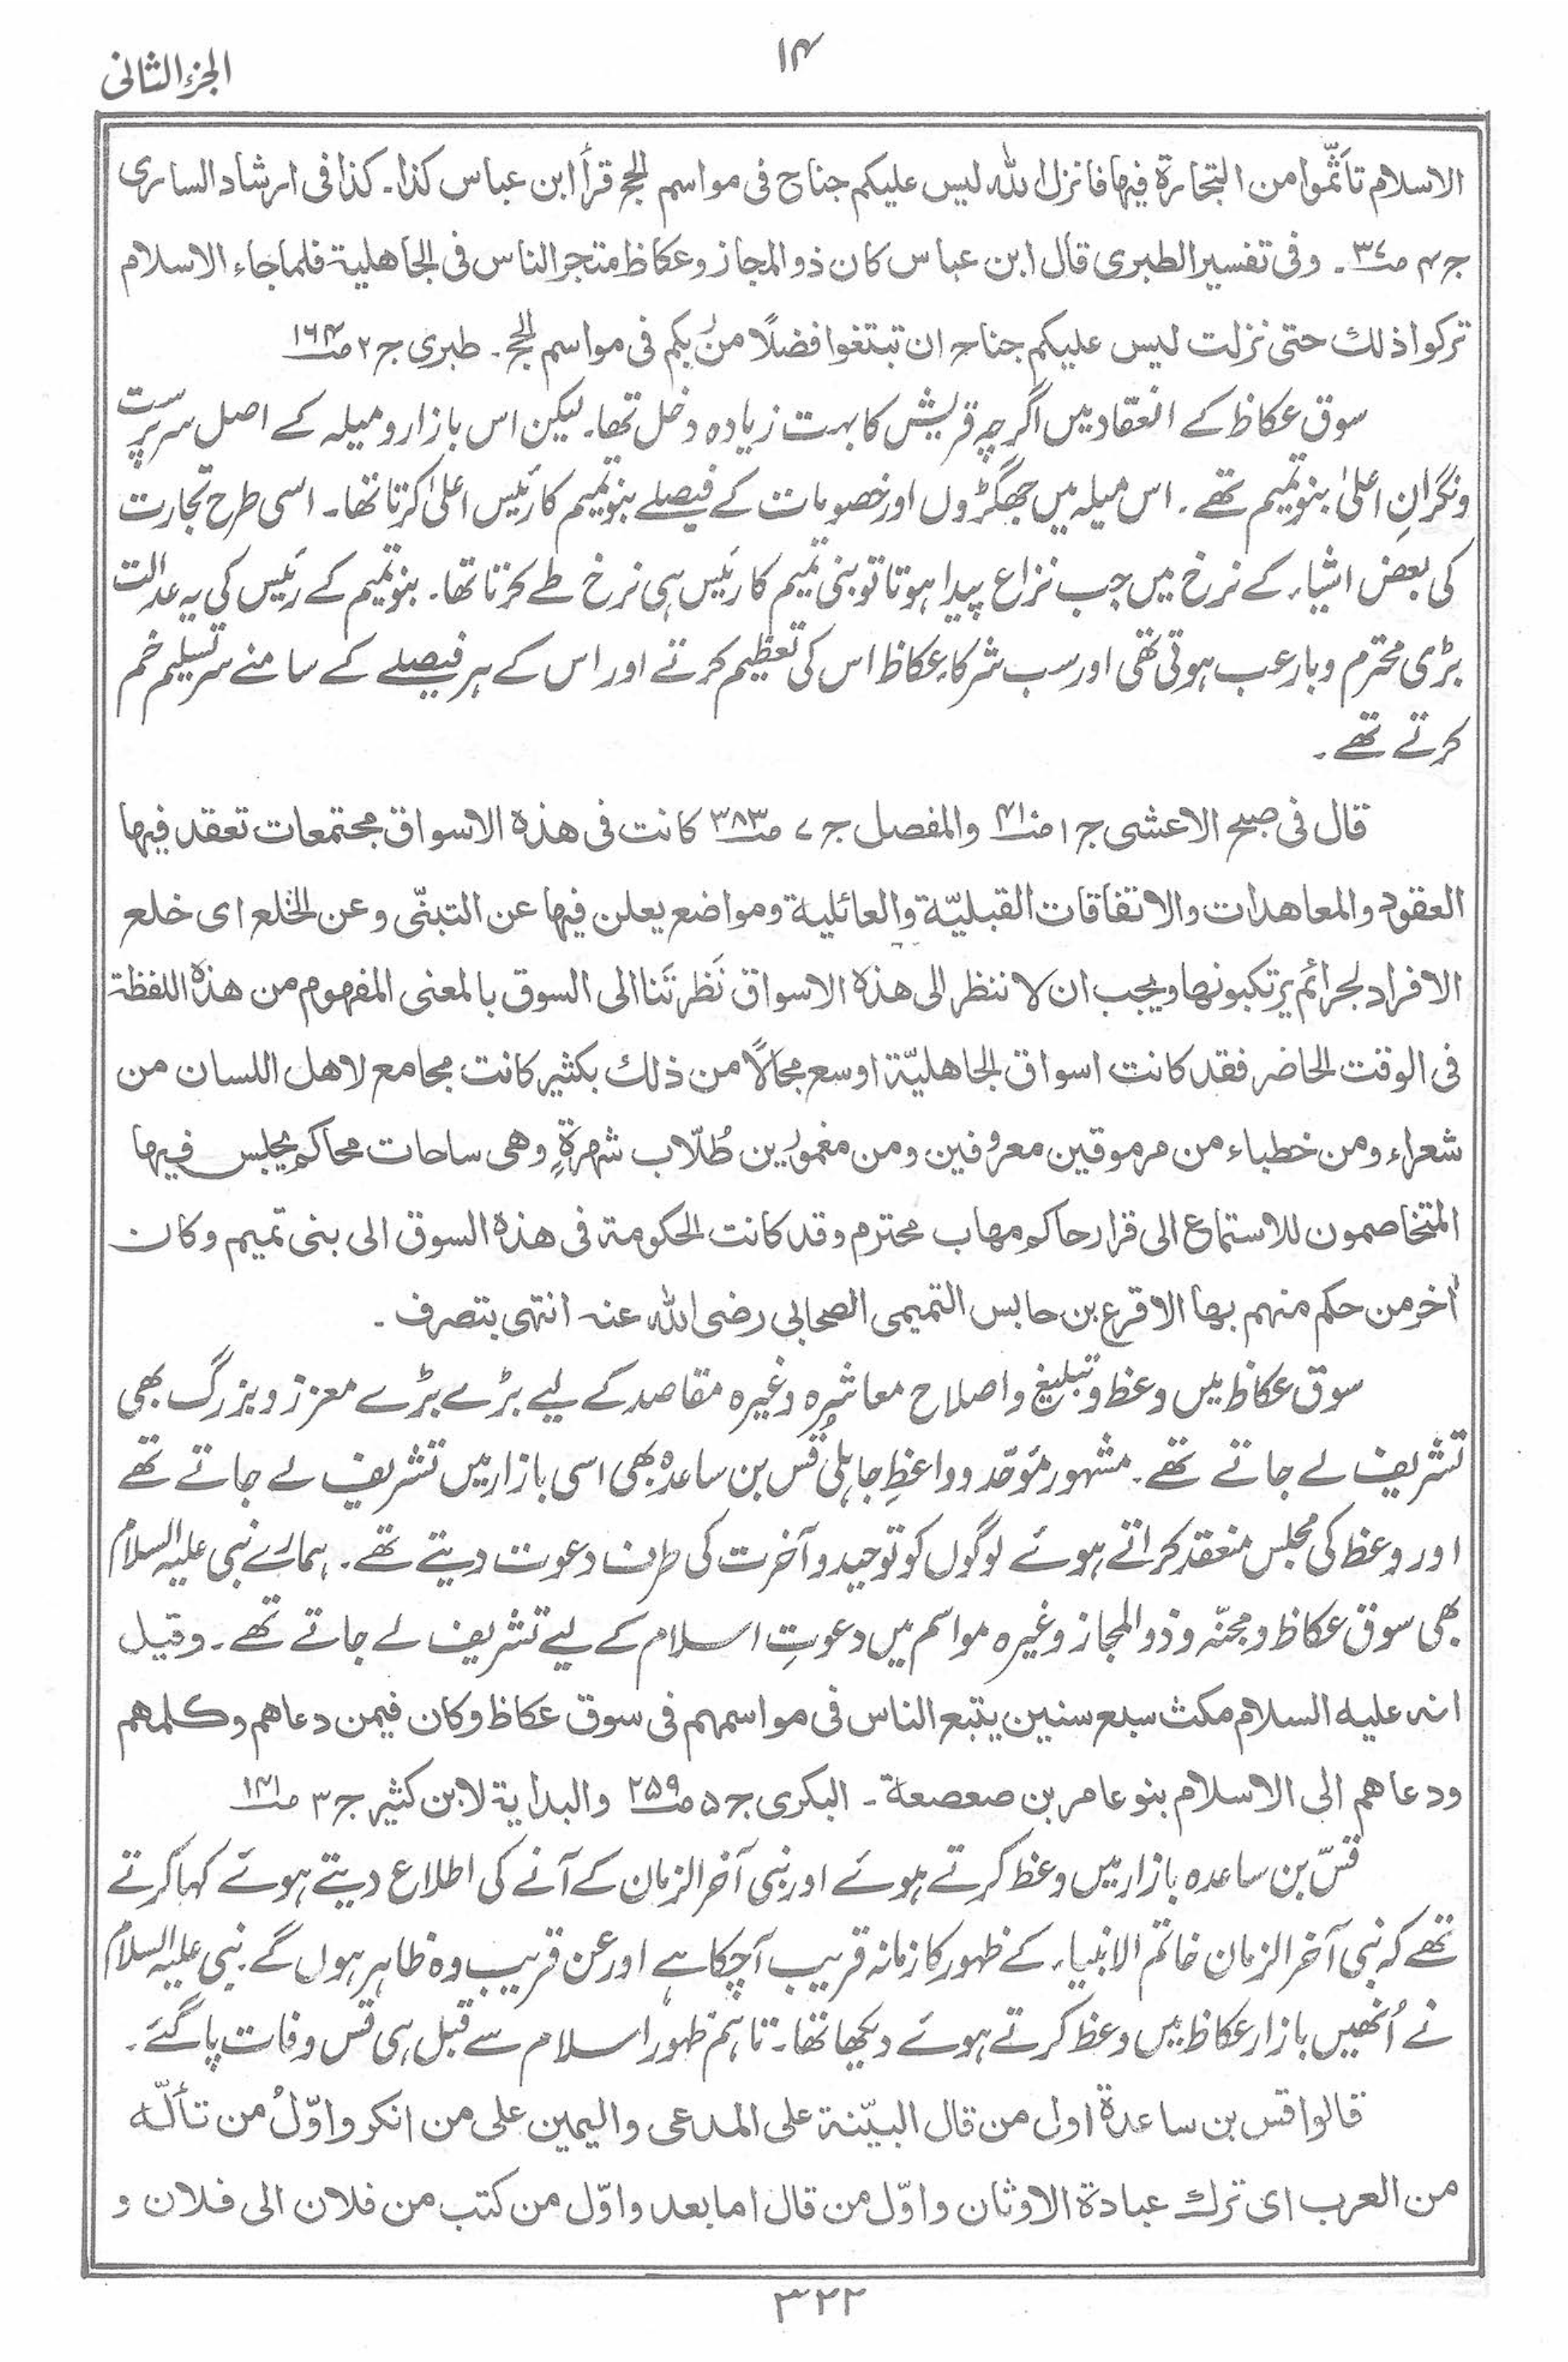 الجزء الثانی
۱۴
الاسلام تأثّموا من التجارة فيها فانزل الله ليس عليكم جناح فی مواسم الحج قرأ ابن عباس كذا۔ كذا فی ارشاد الساری
ج۴ ص۳۷۔ وفی تفسير الطبری قال ابن عباس كان ذو المجاز وعكاظ متجر الناس فی الجاهلية فلما جاء الاسلام
تركوا ذلك حتی نزلت ليس عليكم جناح ان تبتغوا فضلًا من ربكم فی مواسم الحج۔ طبری ج۲ ص۱۶۴
سوق عکاظ کے انعقاد میں اگرچہ قریش کا بہت زیادہ دخل تھا۔ لیکن اس بازار و میلہ کے اصل سرپرست
و نگرانِ اعلیٰ بنو تمیم تھے۔ اس میلہ میں جھگڑوں اور خصومات کے فیصلے بنو تمیم کا رئیس اعلیٰ کرتا تھا۔ اسی طرح تجارت
کی بعض اشیاء کے نرخ میں جب نزاع پیدا ہوتا تو بنی تمیم کا رئیس ہی نرخ طے کرتا تھا۔ بنو تمیم کے رئیس کی یہ عدالت
بڑی محترم و بارعب ہوتی تھی اور سب شرکاءِ عکاظ اس کی تعظیم کرتے اور اس کے ہر فیصلے کے سامنے سر تسلیم خم
کرتے تھے۔
قال فی صبح الاعشی ج۱ ص۴۱۰ والمفصل ج۷ ص۳۸۳ كانت فی هذه الاسواق مجتمعات تعقد فيها
العقود والمعاهدات والاتفاقات القبليّة والعائلية ومواضع يعلن فيها عن التبنّی وعن الخلع ای خلع
الافراد لجرائم يرتكبونها ويجب ان لا ننظر الی هذه الاسواق نَظرتَنا الی السوق بالمعنی المفهوم من هذه اللفظة
فی الوقت الحاضر فقد كانت اسواق الجاهليّة اوسع مجالًا من ذلك بكثير كانت مجامع لاهل اللسان من
شعراء ومن خطباء من مرموقين معروفين ومن مغمورين طُلّاب شهرةٍ وهی ساحات محاكم يجلس فيها
المتخاصمون للاستماع الی قرار حاكم مهاب محترم وقد كانت الحكومة فی هذه السوق الی بنی تميم وكان
اٰخر من حكم منهم بها الاقرع بن حابس التميمی الصحابی رضی الله عنه انتهی بتصرف۔
سوق عکاظ میں وعظ و تبلیغ و اصلاح معاشرہ وغیرہ مقاصد کے لیے بڑے بڑے معزز و بزرگ بھی
تشریف لے جاتے تھے۔ مشہور مُوَحّد و واعظِ جاہلی قُس بن ساعدہ بھی اسی بازار میں تشریف لے جاتے تھے
اور وعظ کی مجلس منعقد کراتے ہوئے لوگوں کو توحید و آخرت کی طرف دعوت دیتے تھے۔ ہمارے نبی علیہ السلام
بھی سوق عکاظ و مجنّہ و ذوالمجاز وغیرہ مواسم میں دعوتِ اسلام کے لیے تشریف لے جاتے تھے۔ وقيل
انه عليه السلام مكث سبع سنين يتبع الناس فی مواسمهم فی سوق عكاظ وكان فيمن دعاهم وكلمهم
ودعاهم الی الاسلام بنو عامر بن صعصعة۔ البكری ج۵ ص۲۵۹ والبداية لابن كثير ج۳ ص۱۴۱
قسّ بن ساعدہ بازار میں وعظ کرتے ہوئے اور نبی آخر الزمان کے آنے کی اطلاع دیتے ہوئے کہا کرتے
تھے کہ نبی آخر الزمان خاتم الانبیاء کے ظہور کا زمانہ قریب آچکا ہے اور عن قریب وہ ظاہر ہوں گے۔ نبی علیہ السلام
نے اُنھیں بازار عکاظ میں وعظ کرتے ہوئے دیکھا تھا۔ تاہم ظہور اسلام سے قبل ہی قس وفات پا گئے۔
قالوا قس بن ساعدة اول من قال البيّنة علی المدعی واليمين علی من انكر واوّلُ من تألّه
من العرب ای ترك عبادة الاوثان واوّل من قال اما بعد واوّل من كتب من فلان الی فلان و
۳۲۲